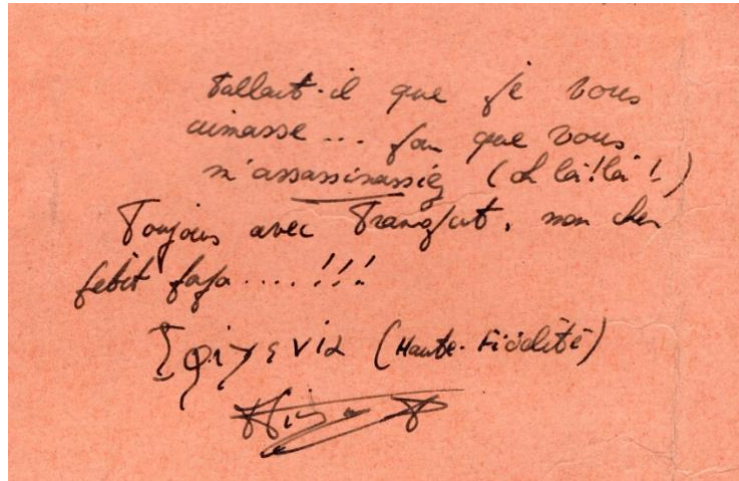 Fallait-il que je vous
aimasse... pour que vous
m'assassinassiez (oh là! là!)
Toujours avec mon cher
petit papa....!!!
Ιφιγενια (Haute-Fidélité)